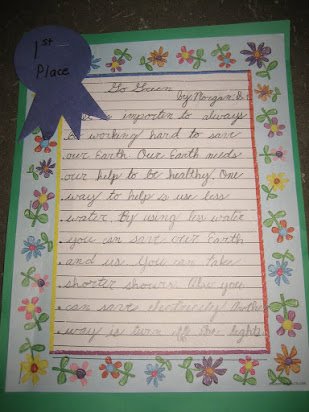 1st
Place
Go Green
by: Morgan
is importen to always
working hard to save
our Earth. Our Earth needs
our help to be healthy. One
way to help is use less
water. By using less water
you can save our Earth
and us. You can take
shorter showers. Also you
can save electricity! Another
way is turn off the lights